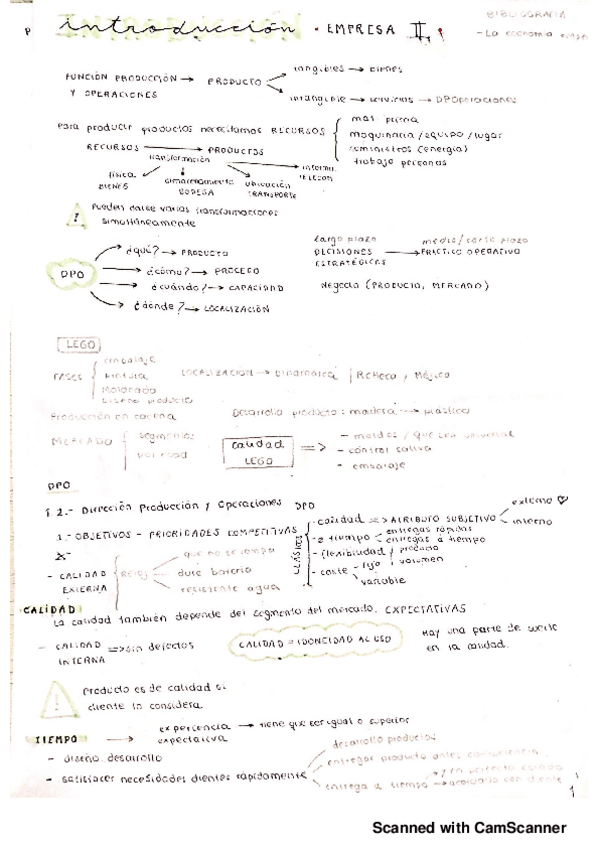 BIBLIOGRAFÍA
P introducción · EMPRESA II
- La economía
FUNCIÓN PRODUCCIÓN → PRODUCTO
Y OPERACIONES
tangibles → BIENES
intangible → servicios → DPOperaciones
Para producir productos necesitamos RECURSOS
mat. prima
maquinaria / equipo / lugar
suministros (energía)
trabajo personas
RECURSOS → PRODUCTOS
transformación
física
BIENES
almacenamiento
BODEGA
ubicación
TRANSPORTE
inform.
TELECOM
! Pueden darse varias transformaciones
simultáneamente
DPO
¿qué? → PRODUCTO
¿cómo? → PROCESO
¿cuándo? → CAPACIDAD
¿dónde? → LOCALIZACIÓN
largo plazo
DECISIONES
ESTRATÉGICAS
→
medio / corto plazo
TÁCTICO OPERATIVO
Negocio (PRODUCTO, MERCADO)
LEGO
FASES
embalaje
Pintura
Moldeado
Diseño producto
LOCALIZACIÓN → Dinamarca, R.Checa y Méjico
Producción en cadena
Desarrollo producto: madera → plástico
MERCADO
segmentos
por edad
calidad
LEGO
=>
- moldes / que sea universal
- control saliva
- embalaje
DPO
1.2.- Dirección Producción y Operaciones DPO
1.- OBJETIVOS - PRIORIDADES COMPETITIVAS
- calidad => ATRIBUTO SUBJETIVO
externo ♡
interno
- tiempo
entregas rápidas
entregas a tiempo
- flexibilidad
producto
volumen
- coste
fijo
variable
- CALIDAD
EXTERNA
RELOJ
que no se rompa
dure batería
resistente agua
CALIDAD
La calidad también depende del segmento del mercado. EXPECTATIVAS
- CALIDAD => sin defectos
INTERNA
CALIDAD = IDONEIDAD AL USO
Hay una parte de suerte
en la calidad.
! Producto es de calidad si
cliente lo considera
TIEMPO →
experiencia → tiene que ser igual o superior
expectativa
- diseño, desarrollo
- satisfacer necesidades clientes rápidamente
desarrollo productos
entregar producto antes competencia
entrega a tiempo
→ acordado con cliente
1
Scanned with CamScanner